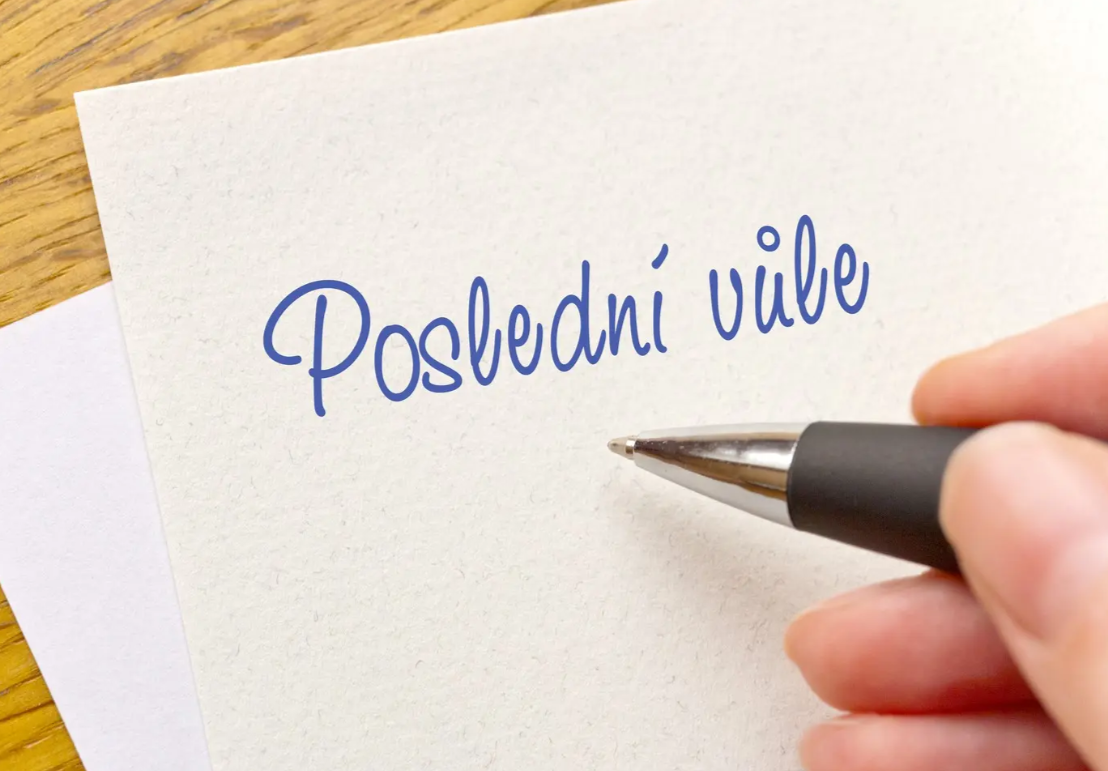 Poslední vůle